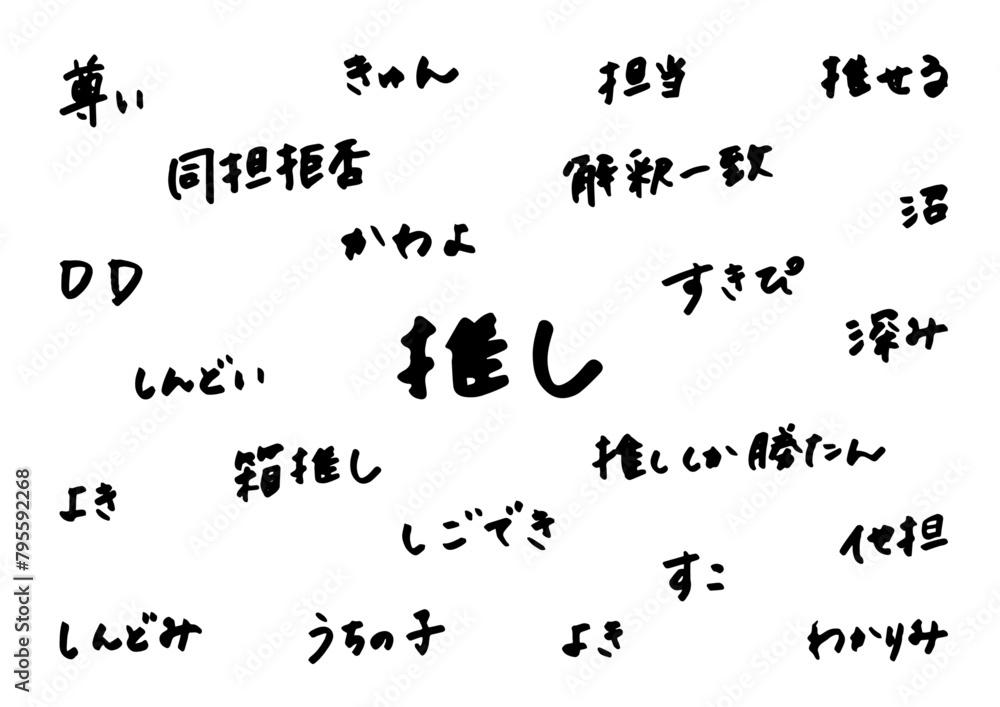 尊い
きゅん
担当
推せる
同担拒否
解釈一致
沼
かわよ
DD
すきぴ
推し
深み
しんどい
箱推し
推ししか勝たん
よき
しごでき
他担
すこ
しんどみ
うちの子
よき
わかりみ
Adobe Stock | #795592268